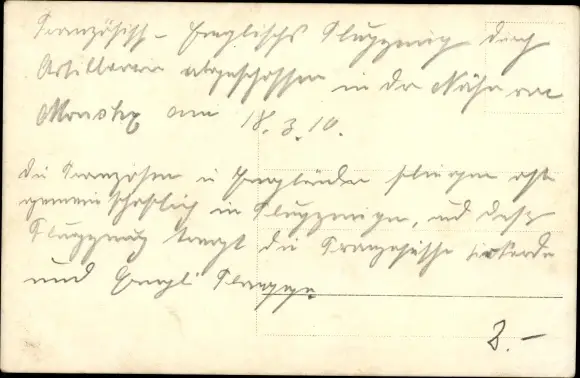 Französisch-Englisches Flugzeug durch
Artillerie abgeschossen in der Nähe von
am 18.3.16.
Die Franzosen u Engländer fliegen oft
gemeinschaftlich in Flugzeuge, und dies
Flugzeug tragt die Französische
und Engl. Flagge.
3.-